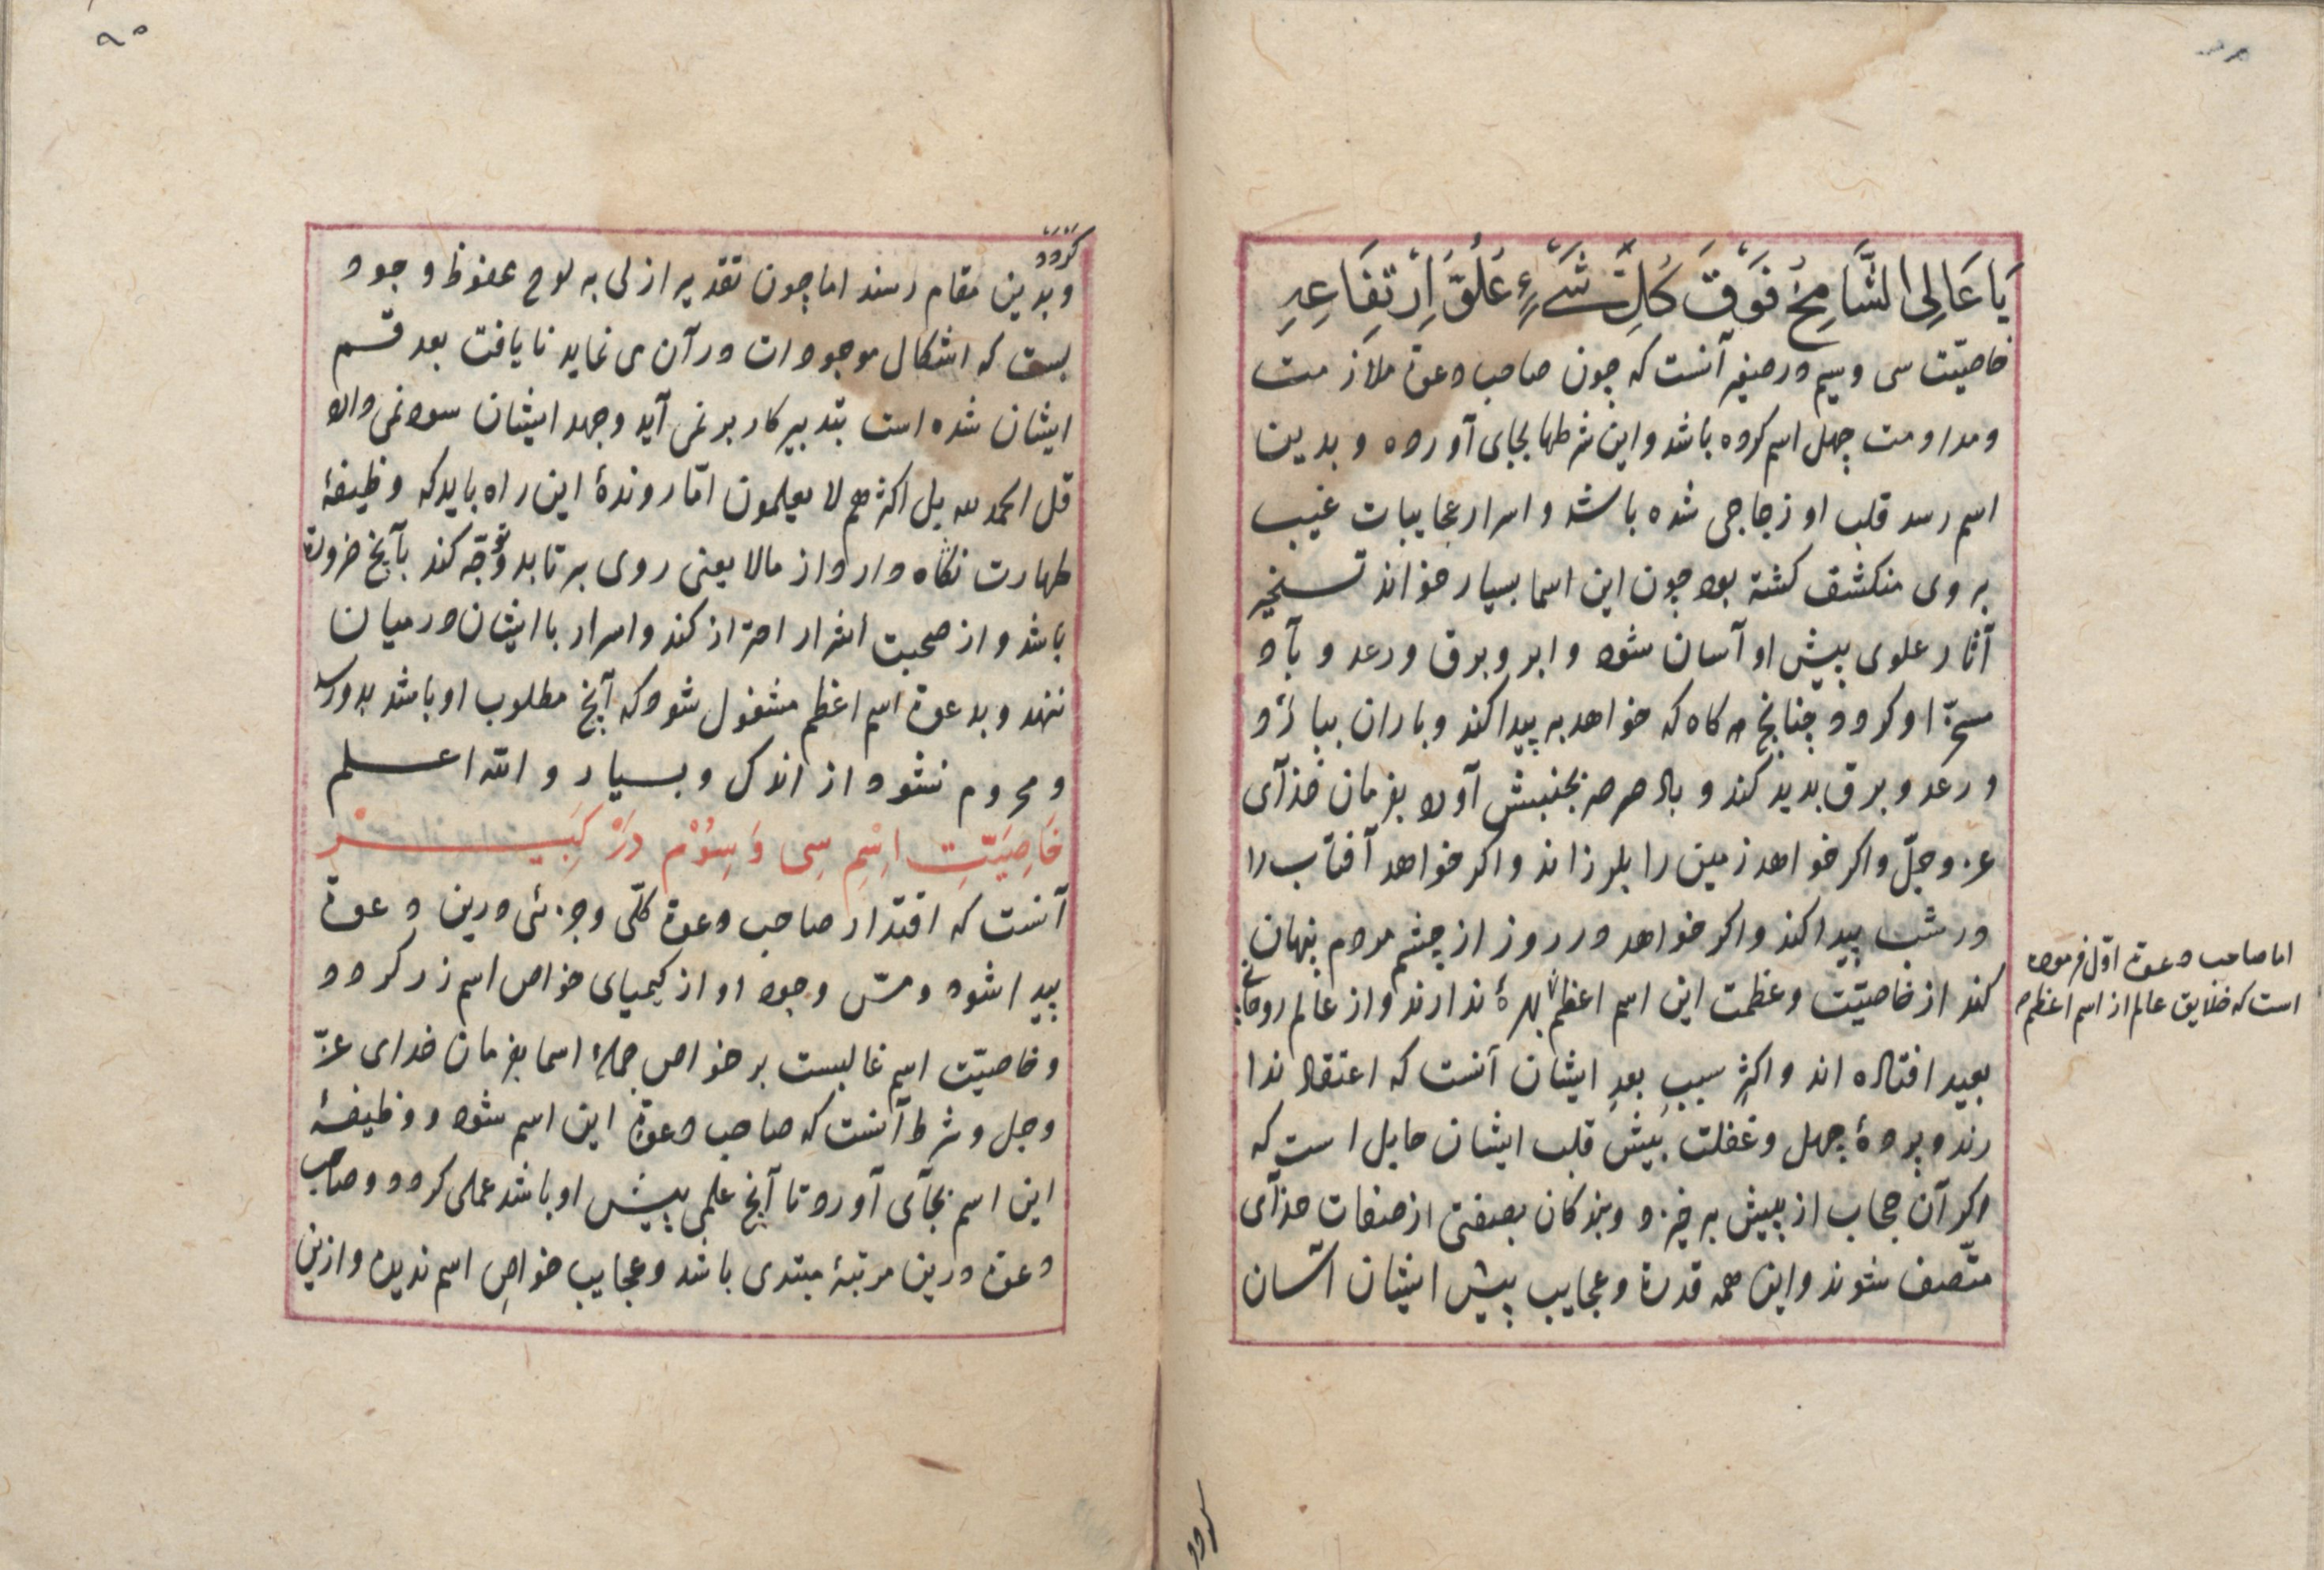 يَا عَالِى الشَّامِخُ فَوْقَ كُلِّ شَیْءٍ عُلُوُّ اِرْتِفَاعِهِ
خاصیّت سی و سیم در صغیر آنست که چون صاحب دعوة ملازمت
و مداومت چهل اسم کرده باشد و این شرطها بجای آورده و بدین
اسم رسد قلب او زجاجی شده باشد و اسرار عجایبات غیب
بروی منکشف کشته بود چون این اسما بسیار خواند تسخیر
آثار علوی پیش او آسان شود و ابر و برق و رعد و باد
مسخّر او کردد چنانچ هر کاه که خواهد ابر پیدا کند و باران بباراند
و رعد و برق بدید کند و باد صرصر بجنبش آورد بفرمان خدآی
عز و جلّ و اکر خواهد زمین را بلرزاند و اکر خواهد آفتاب را
در شب پیدا کند و اکر خواهد در روز از چشم مردم پنهان
کند از خاصیّت و عظمت این اسم اعظم بهرهٔ ندارند و از عالم روحانی
اما صاحب دعوت اوّل فرموده
است که خلایق عالم از اسم اعظم
بعید افتاده اند و اکثرِ سببِ بعدِ ایشان آنست که اعتقاد ندا
رند و پردهٔ جهل و غفلت پیش قلب ایشان حایل است که
اکر آن حجاب از پیش برخیزد و بندکان بصفتی از صفات خدآی
متّصف شوند و این همه قدرة و عجایب پیش ایشان آسان
کردد
کردد
و بدین مقام رسند اما چون تقدیر ازلی به لوح محفوظ وجود
بست که اشکال موجودات در آن می نماید نا یافت بعد قسم
ایشان شده است بتدبیر کار بر نمی آید و جهد ایشان سود نمی دارد
قل الحمد لله بل اکثرهم لا یعلمون امّا روندهٔ این راه باید که وظیفهٔ
طهارت نکاه دارد و از مالا یعنی روی برتابد و توجّه کند بآنچ ضرورة
باشد و از صحبت اشرار احتراز کند و اسرار با ایشان در میان
ننهد و بدعوة اسم اعظم مشغول شود که آنچ مطلوب او باشد بدو رسد
و محروم نشود از اندک و بسیار و الله اعلم
خَاصِیَّتِ اِسْمِ سِی وَ سِوُمْ دَرْ کَبِیْر
آنست که اقتدار صاحب دعوة کلّی و جزئی درین دعوة
پیدا شود و مسّ وجود او از کیمیای خواص اسم زر کردد
و خاصیّت اسم غالبست بر خواص جملهٔ اسما بفرمان خدای عزّ
و جل و شرط آنست که صاحب دعوة این اسم شود و وظیفهٔ
این اسم بجآی آورد تا آنچ علمی پیش او باشد عملی کردد و صاحب
دعوة درین مرتبهٔ مبتدی باشد و عجایب خواصِ اسم ندیده و ازین